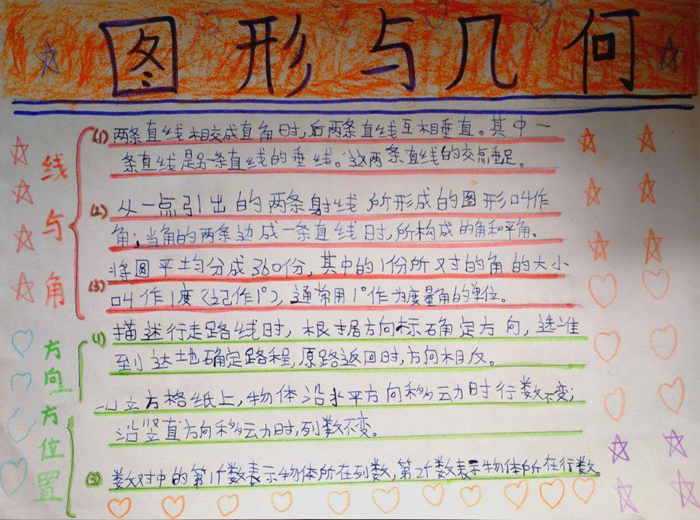 图形与几何
线与角
(1) 两条直线相交成直角时,后两条直线互相垂直。其中一
条直线是另一条直线的垂线。这两条直线的交点垂足。
(2) 从一点引出的两条射线所形成的图形叫作
角;当角的两条边成一条直线时,所构成的角和平角。
将圆平均分成360份,其中的1份所对的角的大小
(3) 叫作1度(记作1°),通常用1°作为度量角的单位。
方向方位置
(1) 描述行走路线时,根据方向标确定方向,选准
到达地确定路程,原路返回时,方向相反。
立方格纸上,物体沿水平方向移动时行数不变;
沿竖直方向移动时,列数不变。
(3) 数对中的第1个数表示物体所在列数,第2个数表示物体所在行数。